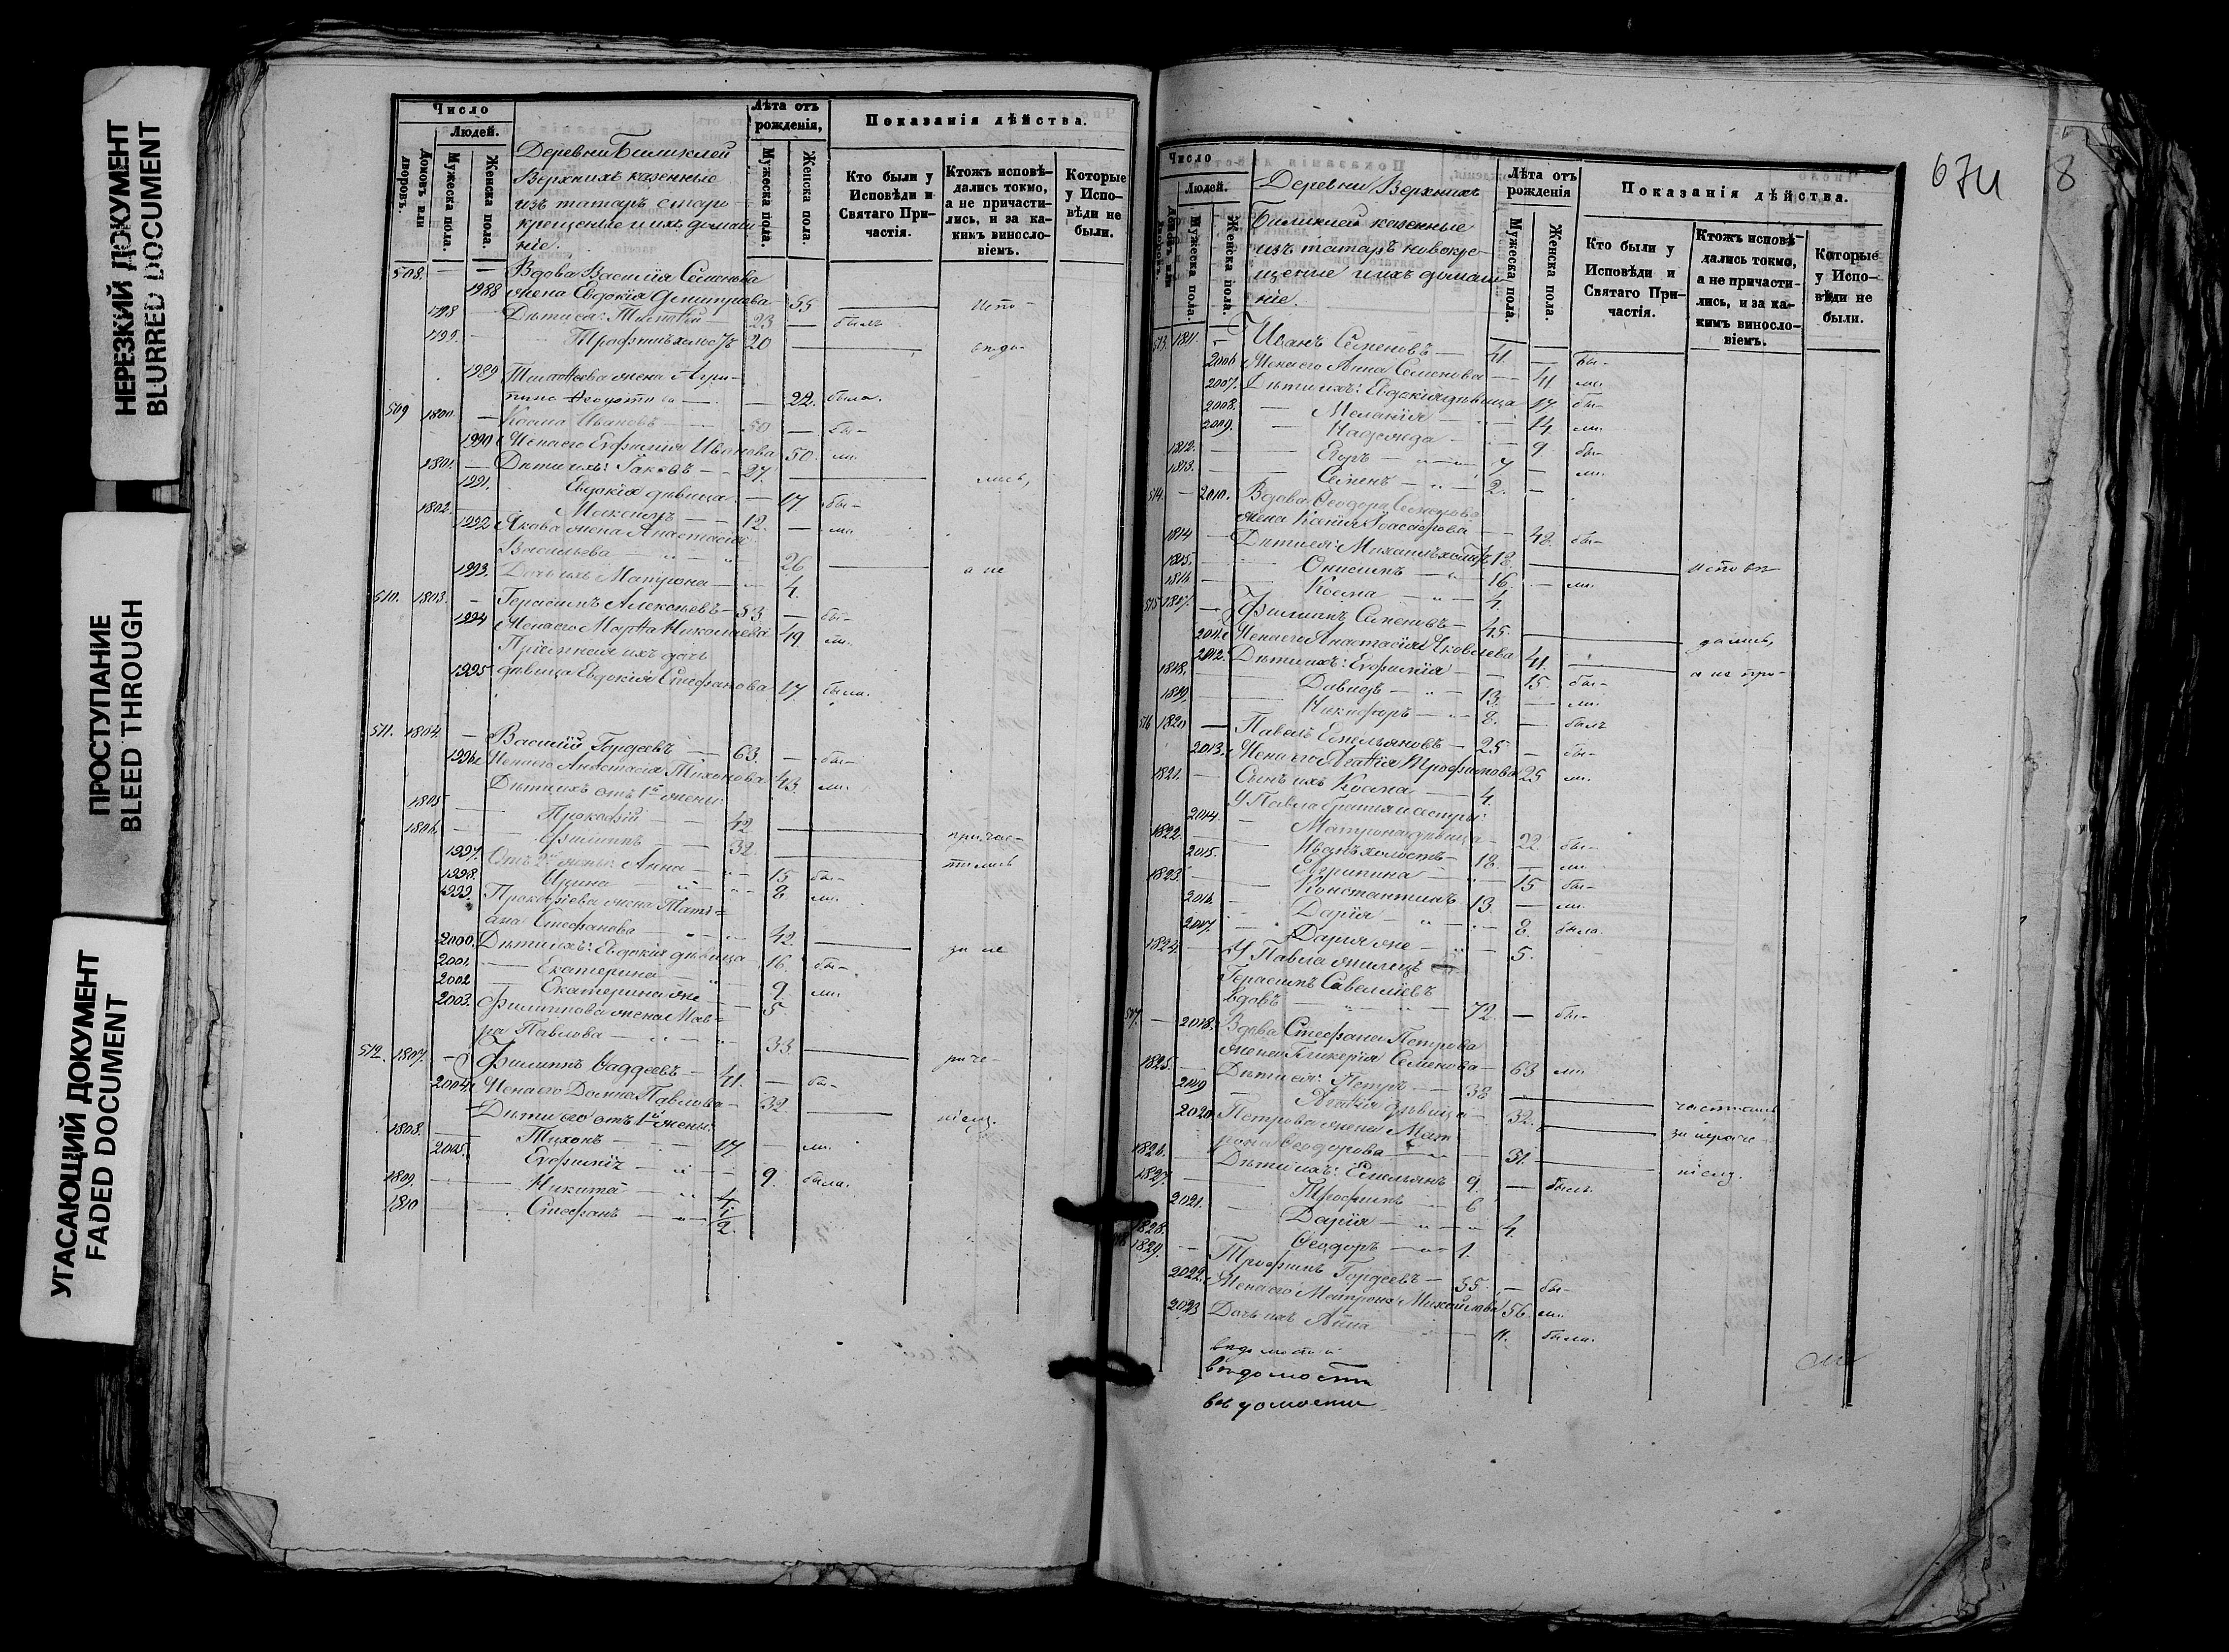 НЕРЕЗКИЙ ДОКУМЕНТ
BLURRED DOCUMENT
ПРОСТУПАНИЕ
BLEED THROUGH
УГАСАЮЩИЙ ДОКУМЕНТ
FADED DOCUMENT
Число
Людей.
Домовъ или дворовъ.
Мужеска пола.
Женска пола.
Деревни Биликлей
Верхнихъ казенные
изъ татаръ старо
крещеные и ихъ домаш-
ніе.
Лѣта отъ рожденія,
Мужеска пола.
Женска пола.
Показанія дѣйства.
Кто были у Исповѣди и Святаго При-частія.
Ктожъ исповѣ-дались токмо, а не причасти-лись, и за ка-кимъ винословіемъ.
Которые у Испо-вѣди не были.
508. — — Вдова Василія Семенова
1988 жена Евдокія Дмитріева 55 — испо-
1798 Дѣти ея: Тимоѳей 23 — былъ
1799. — Трофимъ холостъ 20 — вѣда-
1989 Тимоѳеева жена Агри-
пина — 22. была.
509 1800. — Косма Ивановъ — 50 — бы-
1990 Жена его Евфимія Иванова 50. ли.
1801. — Дѣти ихъ: Іаковъ — 27. — лись,
1991. Евдокія дѣвица — 17 бы-
1802. Максимъ — 12. — ли.
1992 Якова жена Анастасія
Васильева — 26 — а не
1993. Дочь ихъ Матрона — 4.
510. 1803. — Герасимъ Алексѣевъ — 53 — бы-
1994 Жена его Марѳа Николаева 49 ли.
Пріемная ихъ дочь
1995 дѣвица Евдокія Стефанова 17 была.
511. 1804 — Василій Гордеевъ — 63. — бы-
1996 Жена его Анастасія Тихонова 43. ли.
Дѣти ихъ отъ 1й жены
1805 Прокофій — 42 — причас-
1806. Филиппъ — 32. — тились
1997. Отъ 2й жены: Анна — 15 бы-
1998. Ирина — 8. ли.
1999. Прокофіева жена Тати=
ана Стефанова — 42. — за не
2000. Дѣти ихъ: Евдокія дѣвица 16. бы-
2001. — Екатерина — 9. ли.
2002 — Екатерина же — 5.
2003. Филиппова жена Мав=
ра Павлова — 33. — раче-
512. 1807. — Филиппъ Фаддеевъ — 41. — бы-
2004. Жена его Домна Павлова — 32. — ніемъ.
Дѣти его отъ 1й жены:
1808. Тихонъ — 17 — ли.
2005. Евфимія — 9. была.
1809. Никита — 4
1810 Стефанъ — 1/2.
674
8
Число
Людей.
Домовъ или дворовъ.
Мужеска пола.
Женска пола.
Деревни Верхнихъ
Биликлей казенные
изъ татаръ новокре-
щеные и ихъ домаш-
ніе.
Лѣта отъ рожденія
Мужеска пола.
Женска пола.
Показанія дѣйства.
Кто были у Исповѣди и Святаго При-частія.
Ктожъ исповѣ-дались токмо, а не причасти-лись, и за ка-кимъ винословіемъ.
Которые у Испо-вѣди не были.
513. 1811. — Иванъ Семеновъ — 41. — бы-
2006 Жена его Анна Семенова — 41. ли.
2007. Дѣти ихъ: Евдокія дѣвица 17. бы-
2008. — Меланія — 14. ли.
2009. — Надежда — 9. бы-
1812. — Егоръ — 7 — ли.
1813. — Семенъ — 2. —
514. — 2010. Вдова Ѳеодора Семенова
жена — 48. бы-
1814 — Дѣти ея: Михаилъ холостъ 18. — исповѣ
1815. Онисимъ — 16. — ли.
1816 Косма — 4.
515 1817. — Филиппъ Семеновъ — 45. — дались,
2011. Жена его Анастасія Яковлева 41. — а не при-
2012. Дѣти ихъ: Евфимія — 15. бы-
1818. Давидъ — 13. — ли.
1819. Никифоръ — 8. — былъ
516 1820 — Павелъ Емельяновъ — 25 — бы-
2013. Жена его Агаѳія Трофимова 25 ли.
1821. — Сынъ ихъ Косма — 4.
У Павла братья и сестры:
2014. Матрона дѣвица — 22. бы-
1822. Иванъ холостъ — 18. — ли.
2015. Агрипина — 15 бы-
1823. Константинъ 13. — ли.
2016. Дарія — 8. была.
2017. Дарія же — 5.
1824. У Павла жилецъ
Герасимъ Савеліевъ
вдовъ — 72. — бы-
517. — 2018. Вдова Стефана Петрова
жена Гликерія Семенова — 63 ли.
1825. — Дѣти ея: Петръ — 38 — частились
2019 Агаѳія дѣвица — 32. — за нераче-
2020. Петрова жена Мат-
рона Ѳеодорова — 31. — ніемъ.
1826. Дѣти ихъ: Емельянъ 9. — былъ.
1827. Трофимъ — 6
2021. Дарія — 4.
1828. Ѳеодоръ — 1.
1829. — Трофимъ Гордеевъ — 55. — бы-
2022. Жена его Матрона Михайлова 56. ли.
2023 Дочь ихъ Анна — 11. была.
вѣдомости
вѣдомости
вѣдомости